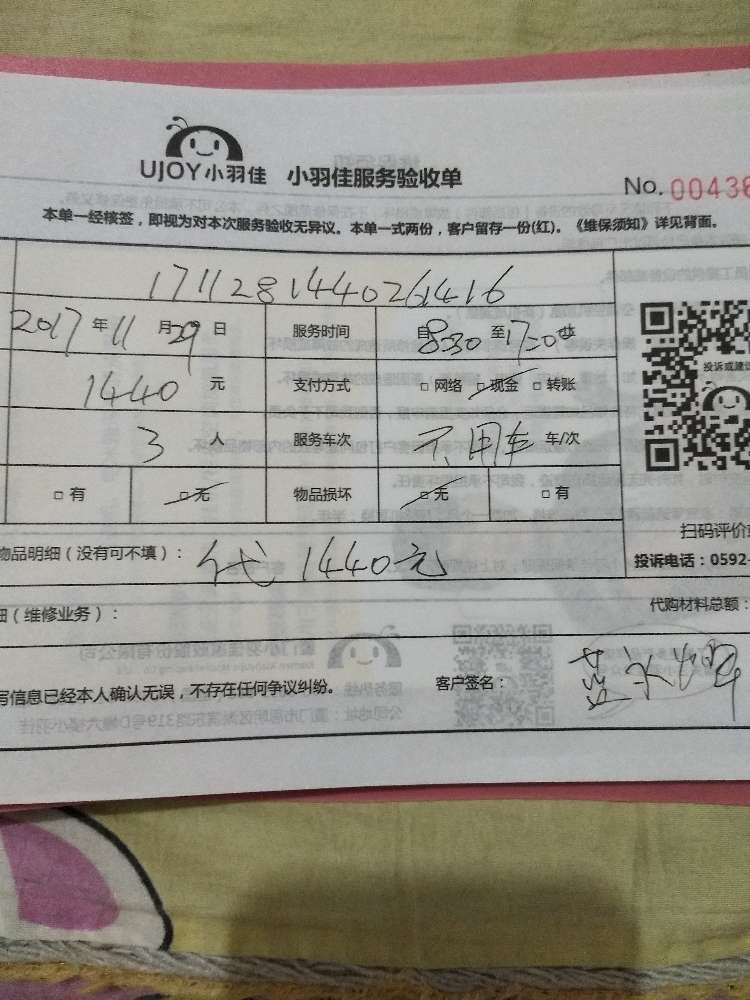 UJOY小羽佳 小羽佳服务验收单
No. 00436
本单一经核签，即视为对本次服务验收无异议。本单一式两份，客户留存一份(红)。《维保须知》详见背面。
1711281440261416
2017 年 11 月 29 日 服务时间 自8:30 至17:00止
1440 元 支付方式 □ 网络 □ 现金 □ 转账
投诉或建议
3 人 服务车次 不用车 车/次
□ 有 □ 无 物品损坏 □ 无 □ 有
扫码评价
物品明细（没有可不填）： 代 1440元
投诉电话：0592-
细（维修业务）：
代购材料总额：
写信息已经本人确认无误，不存在任何争议纠纷。 客户签名：